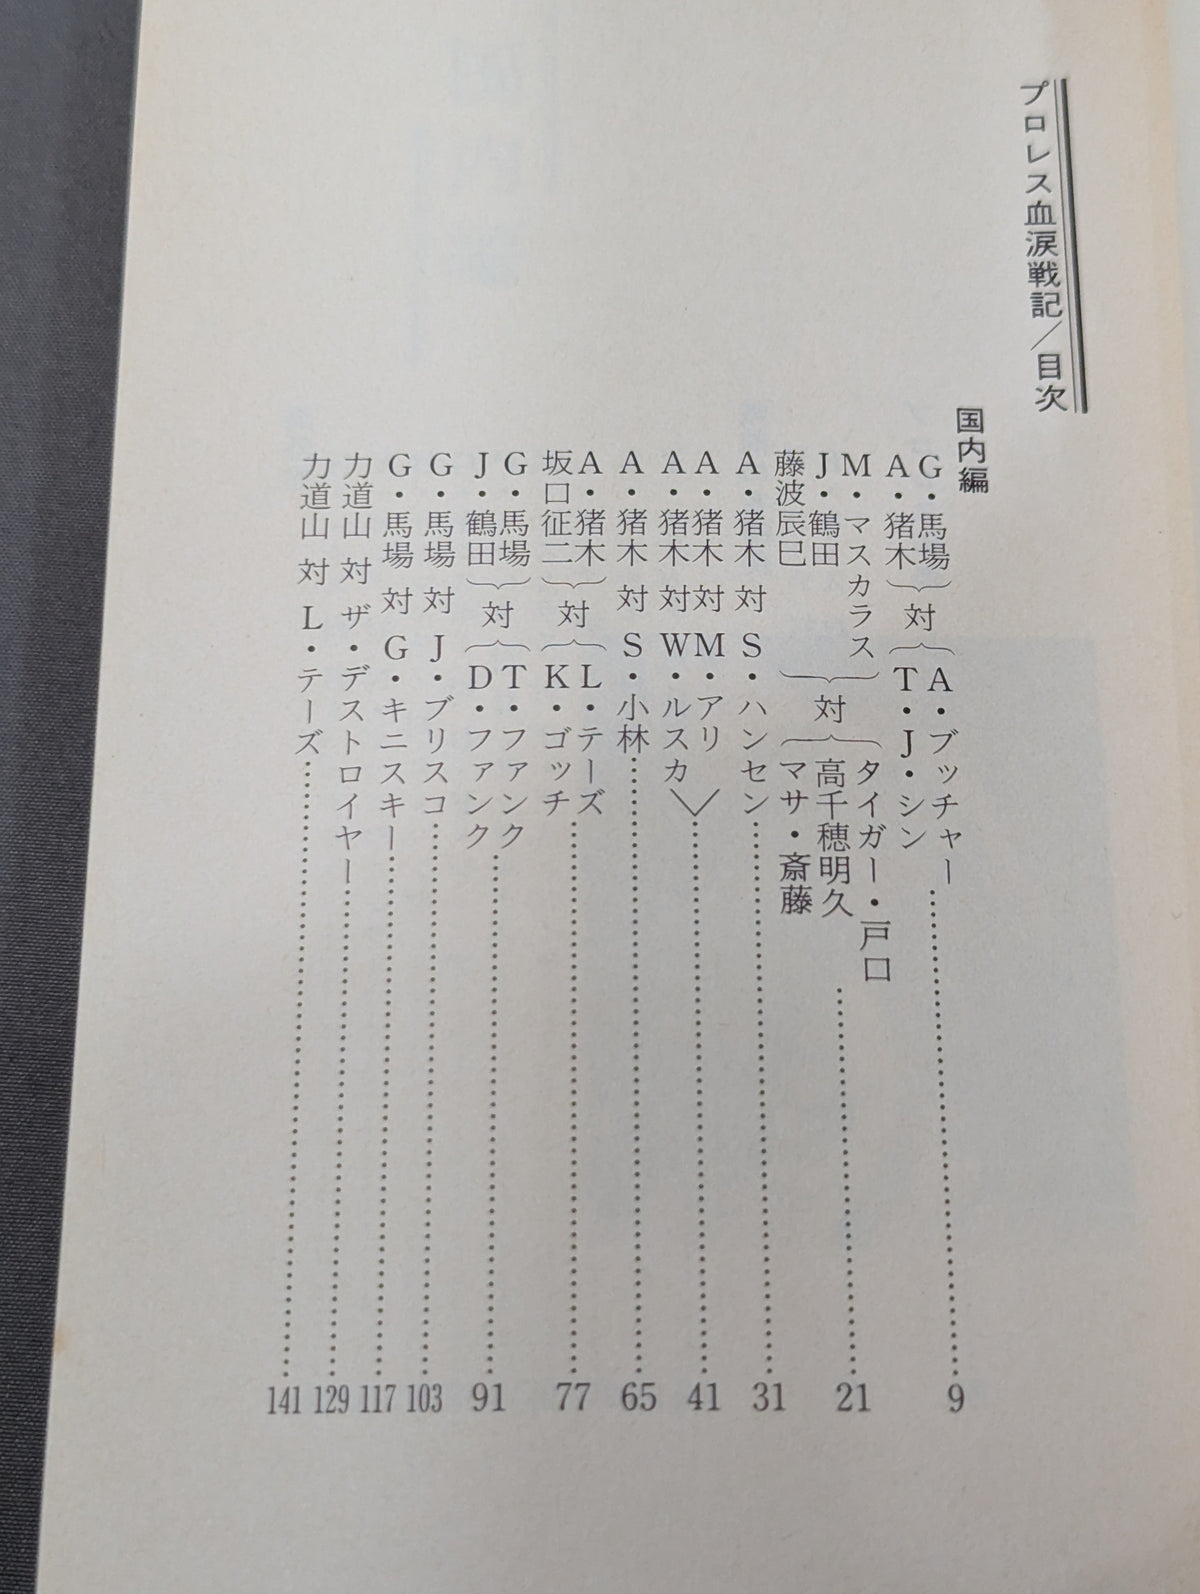 プロレス血涙戦記／目次
国内編
G・馬場
A・猪木
対
A・ブッチャー
T・J・シン
9
M・マスカラス
J・鶴田
藤波辰巳
対
タイガー・戸口
高千穂明久
マサ・斎藤
21
A・猪木 対 S・ハンセン
31
A・猪木 対 M・アリ
A・猪木 対 W・ルスカ
41
A・猪木 対 S・小林
65
A・猪木
坂口征二
対
L・テーズ
K・ゴッチ
77
G・馬場
J・鶴田
対
T・ファンク
D・ファンク
91
G・馬場 対 J・ブリスコ
103
G・馬場 対 G・キニスキー
117
力道山 対 ザ・デストロイヤー
129
力道山 対 L・テーズ
141